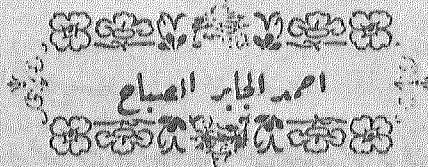 احمد الجابر الصباح